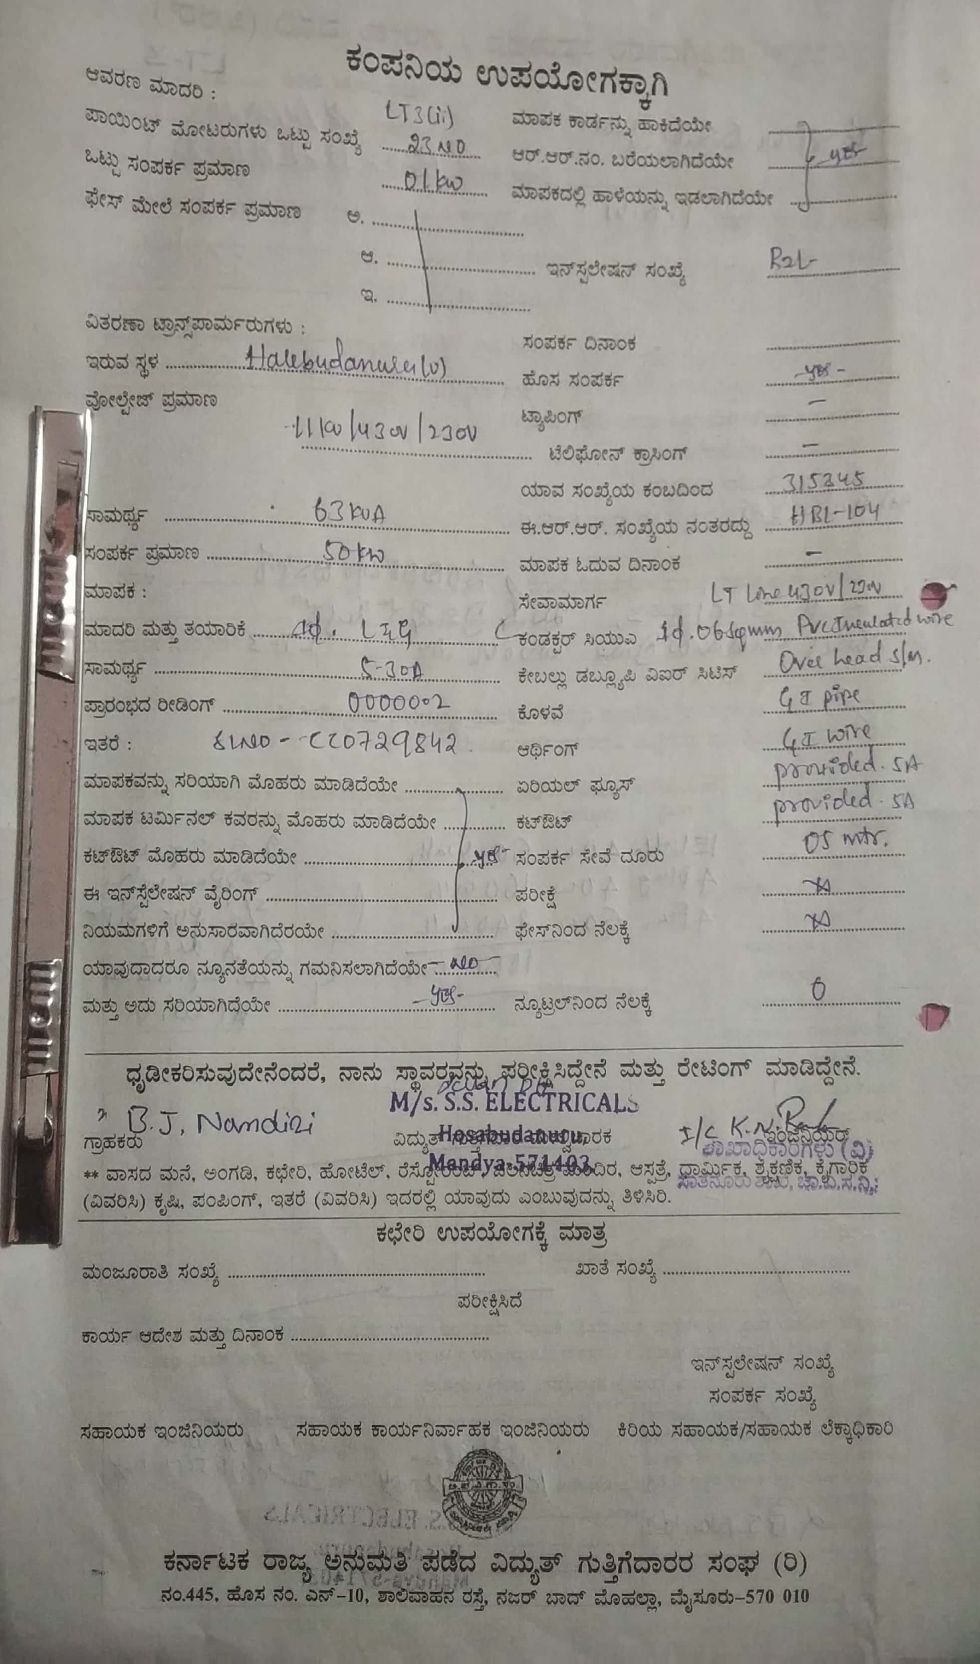 ಕಂಪನಿಯ ಉಪಯೋಗಕ್ಕಾಗಿ
ಆವರಣ ಮಾದರಿ : LT3(ii) ಮಾಪಕ ಕಾರ್ಡನ್ನು ಹಾಕಿದೆಯೇ
ಪಾಯಿಂಟ್ ಮೋಟರುಗಳು ಒಟ್ಟು ಸಂಖ್ಯೆ 23 NO ಆರ್.ಆರ್.ನಂ. ಬರೆಯಲಾಗಿದೆಯೇ yes
ಒಟ್ಟು ಸಂಪರ್ಕ ಪ್ರಮಾಣ 01 kw ಮಾಪಕದಲ್ಲಿ ಹಾಳೆಯನ್ನು ಇಡಲಾಗಿದೆಯೇ
ಫೇಸ್ ಮೇಲೆ ಸಂಪರ್ಕ ಪ್ರಮಾಣ ಅ.
ಆ. ಇನ್‌ಸ್ಟಲೇಷನ್ ಸಂಖ್ಯೆ
ಇ.
ವಿತರಣಾ ಟ್ರಾನ್ಸ್‌ಪಾರ್ಮರುಗಳು : ಸಂಪರ್ಕ ದಿನಾಂಕ
ಇರುವ ಸ್ಥಳ Halebudanuru(v) ಹೊಸ ಸಂಪರ್ಕ -yes-
ವೋಲ್ಟೇಜ್ ಪ್ರಮಾಣ ಟ್ಯಾಪಿಂಗ್ -
11kv/430v/230v ಟೆಲಿಫೋನ್ ಕ್ರಾಸಿಂಗ್ -
ಯಾವ ಸಂಖ್ಯೆಯ ಕಂಬದಿಂದ 315345
ಸಾಮರ್ಥ್ಯ 63 KVA ಈ.ಆರ್.ಆರ್. ಸಂಖ್ಯೆಯ ನಂತರದ್ದು HBL-104
ಸಂಪರ್ಕ ಪ್ರಮಾಣ 50 kw ಮಾಪಕ ಓದುವ ದಿನಾಂಕ -
ಮಾಪಕ : ಸೇವಾಮಾರ್ಗ LT Line 430V/230V
ಮಾದರಿ ಮತ್ತು ತಯಾರಿಕೆ 1φ. L&G ಕಂಡಕ್ಟರ್ ಸಿಯುಎ 1φ.06sqmm PVC Insulated wire
ಸಾಮರ್ಥ್ಯ 5-30A ಕೇಬಲ್ಲು ಡಬ್ಲ್ಯೂಪಿ ವಿಐಆರ್ ಸಿಟಿಸ್ Over head s/m.
ಪ್ರಾರಂಭದ ರೀಡಿಂಗ್ 0000002 ಕೊಳವೆ GI pipe
ಇತರೆ : SlNO - CC0729842 ಆರ್ಥಿಂಗ್ GI wire
ಮಾಪಕವನ್ನು ಸರಿಯಾಗಿ ಮೊಹರು ಮಾಡಿದೆಯೇ ಏರಿಯಲ್ ಫ್ಯೂಸ್ provided. 5A
ಮಾಪಕ ಟರ್ಮಿನಲ್ ಕವರನ್ನು ಮೊಹರು ಮಾಡಿದೆಯೇ ಕಟ್‌ಔಟ್ provided. 5A
ಕಟ್‌ಔಟ್ ಮೊಹರು ಮಾಡಿದೆಯೇ yes ಸಂಪರ್ಕ ಸೇವೆ ದೂರು 05 mtr.
ಈ ಇನ್‌ಸ್ಟೆಲೇಷನ್ ವೈರಿಂಗ್ ಪರೀಕ್ಷೆ
ನಿಯಮಗಳಿಗೆ ಅನುಸಾರವಾಗಿದೆರಯೇ ಫೇಸ್‌ನಿಂದ ನೆಲಕ್ಕೆ
ಯಾವುದಾದರೂ ನ್ಯೂನತೆಯನ್ನು ಗಮನಿಸಲಾಗಿದೆಯೇ - NO -
ಮತ್ತು ಅದು ಸರಿಯಾಗಿದೆಯೇ -yes- ನ್ಯೂಟ್ರಲ್‌ನಿಂದ ನೆಲಕ್ಕೆ 0
ಧೃಡೀಕರಿಸುವುದೇನೆಂದರೆ, ನಾನು ಸ್ಥಾವರವನ್ನು ಪರೀಕ್ಷಿಸಿದ್ದೇನೆ ಮತ್ತು ರೇಟಿಂಗ್ ಮಾಡಿದ್ದೇನೆ.
M/s. S.S. ELECTRICALS
B.J. Nandini Hosabudanuru,
ಗ್ರಾಹಕರು ವಿದ್ಯುತ್ ಇಂಜಿನಿಯರ್
Mandya-571403 ಶಾಖಾಧಿಕಾರಿಗಳು (ವಿ)
** ವಾಸದ ಮನೆ, ಅಂಗಡಿ, ಕಛೇರಿ, ಹೋಟೆಲ್, ರೆಸ್ಟೋರೆಂಟ್, ಆಸ್ಪತ್ರೆ, ಧಾರ್ಮಿಕ, ಶೈಕ್ಷಣಿಕ, ಕೈಗಾರಿಕೆ
(ವಿವರಿಸಿ) ಕೃಷಿ, ಪಂಪಿಂಗ್, ಇತರೆ (ವಿವರಿಸಿ) ಇದರಲ್ಲಿ ಯಾವುದು ಎಂಬುವುದನ್ನು ತಿಳಿಸಿರಿ.
ಕಛೇರಿ ಉಪಯೋಗಕ್ಕೆ ಮಾತ್ರ
ಮಂಜೂರಾತಿ ಸಂಖ್ಯೆ ಖಾತೆ ಸಂಖ್ಯೆ
ಪರೀಕ್ಷಿಸಿದೆ
ಕಾರ್ಯ ಆದೇಶ ಮತ್ತು ದಿನಾಂಕ
ಇನ್‌ಸ್ಟಲೇಷನ್ ಸಂಖ್ಯೆ
ಸಂಪರ್ಕ ಸಂಖ್ಯೆ
ಸಹಾಯಕ ಇಂಜಿನಿಯರು ಸಹಾಯಕ ಕಾರ್ಯನಿರ್ವಾಹಕ ಇಂಜಿನಿಯರು ಕಿರಿಯ ಸಹಾಯಕ/ಸಹಾಯಕ ಲೆಕ್ಕಾಧಿಕಾರಿ
ಕರ್ನಾಟಕ ರಾಜ್ಯ ಅನುಮತಿ ಪಡೆದ ವಿದ್ಯುತ್ ಗುತ್ತಿಗೆದಾರರ ಸಂಘ (ರಿ)
ನಂ.445, ಹೊಸ ನಂ. ಎನ್-10, ಶಾಲಿವಾಹನ ರಸ್ತೆ, ನಜರ್ ಬಾದ್ ಮೊಹಲ್ಲಾ, ಮೈಸೂರು-570 010